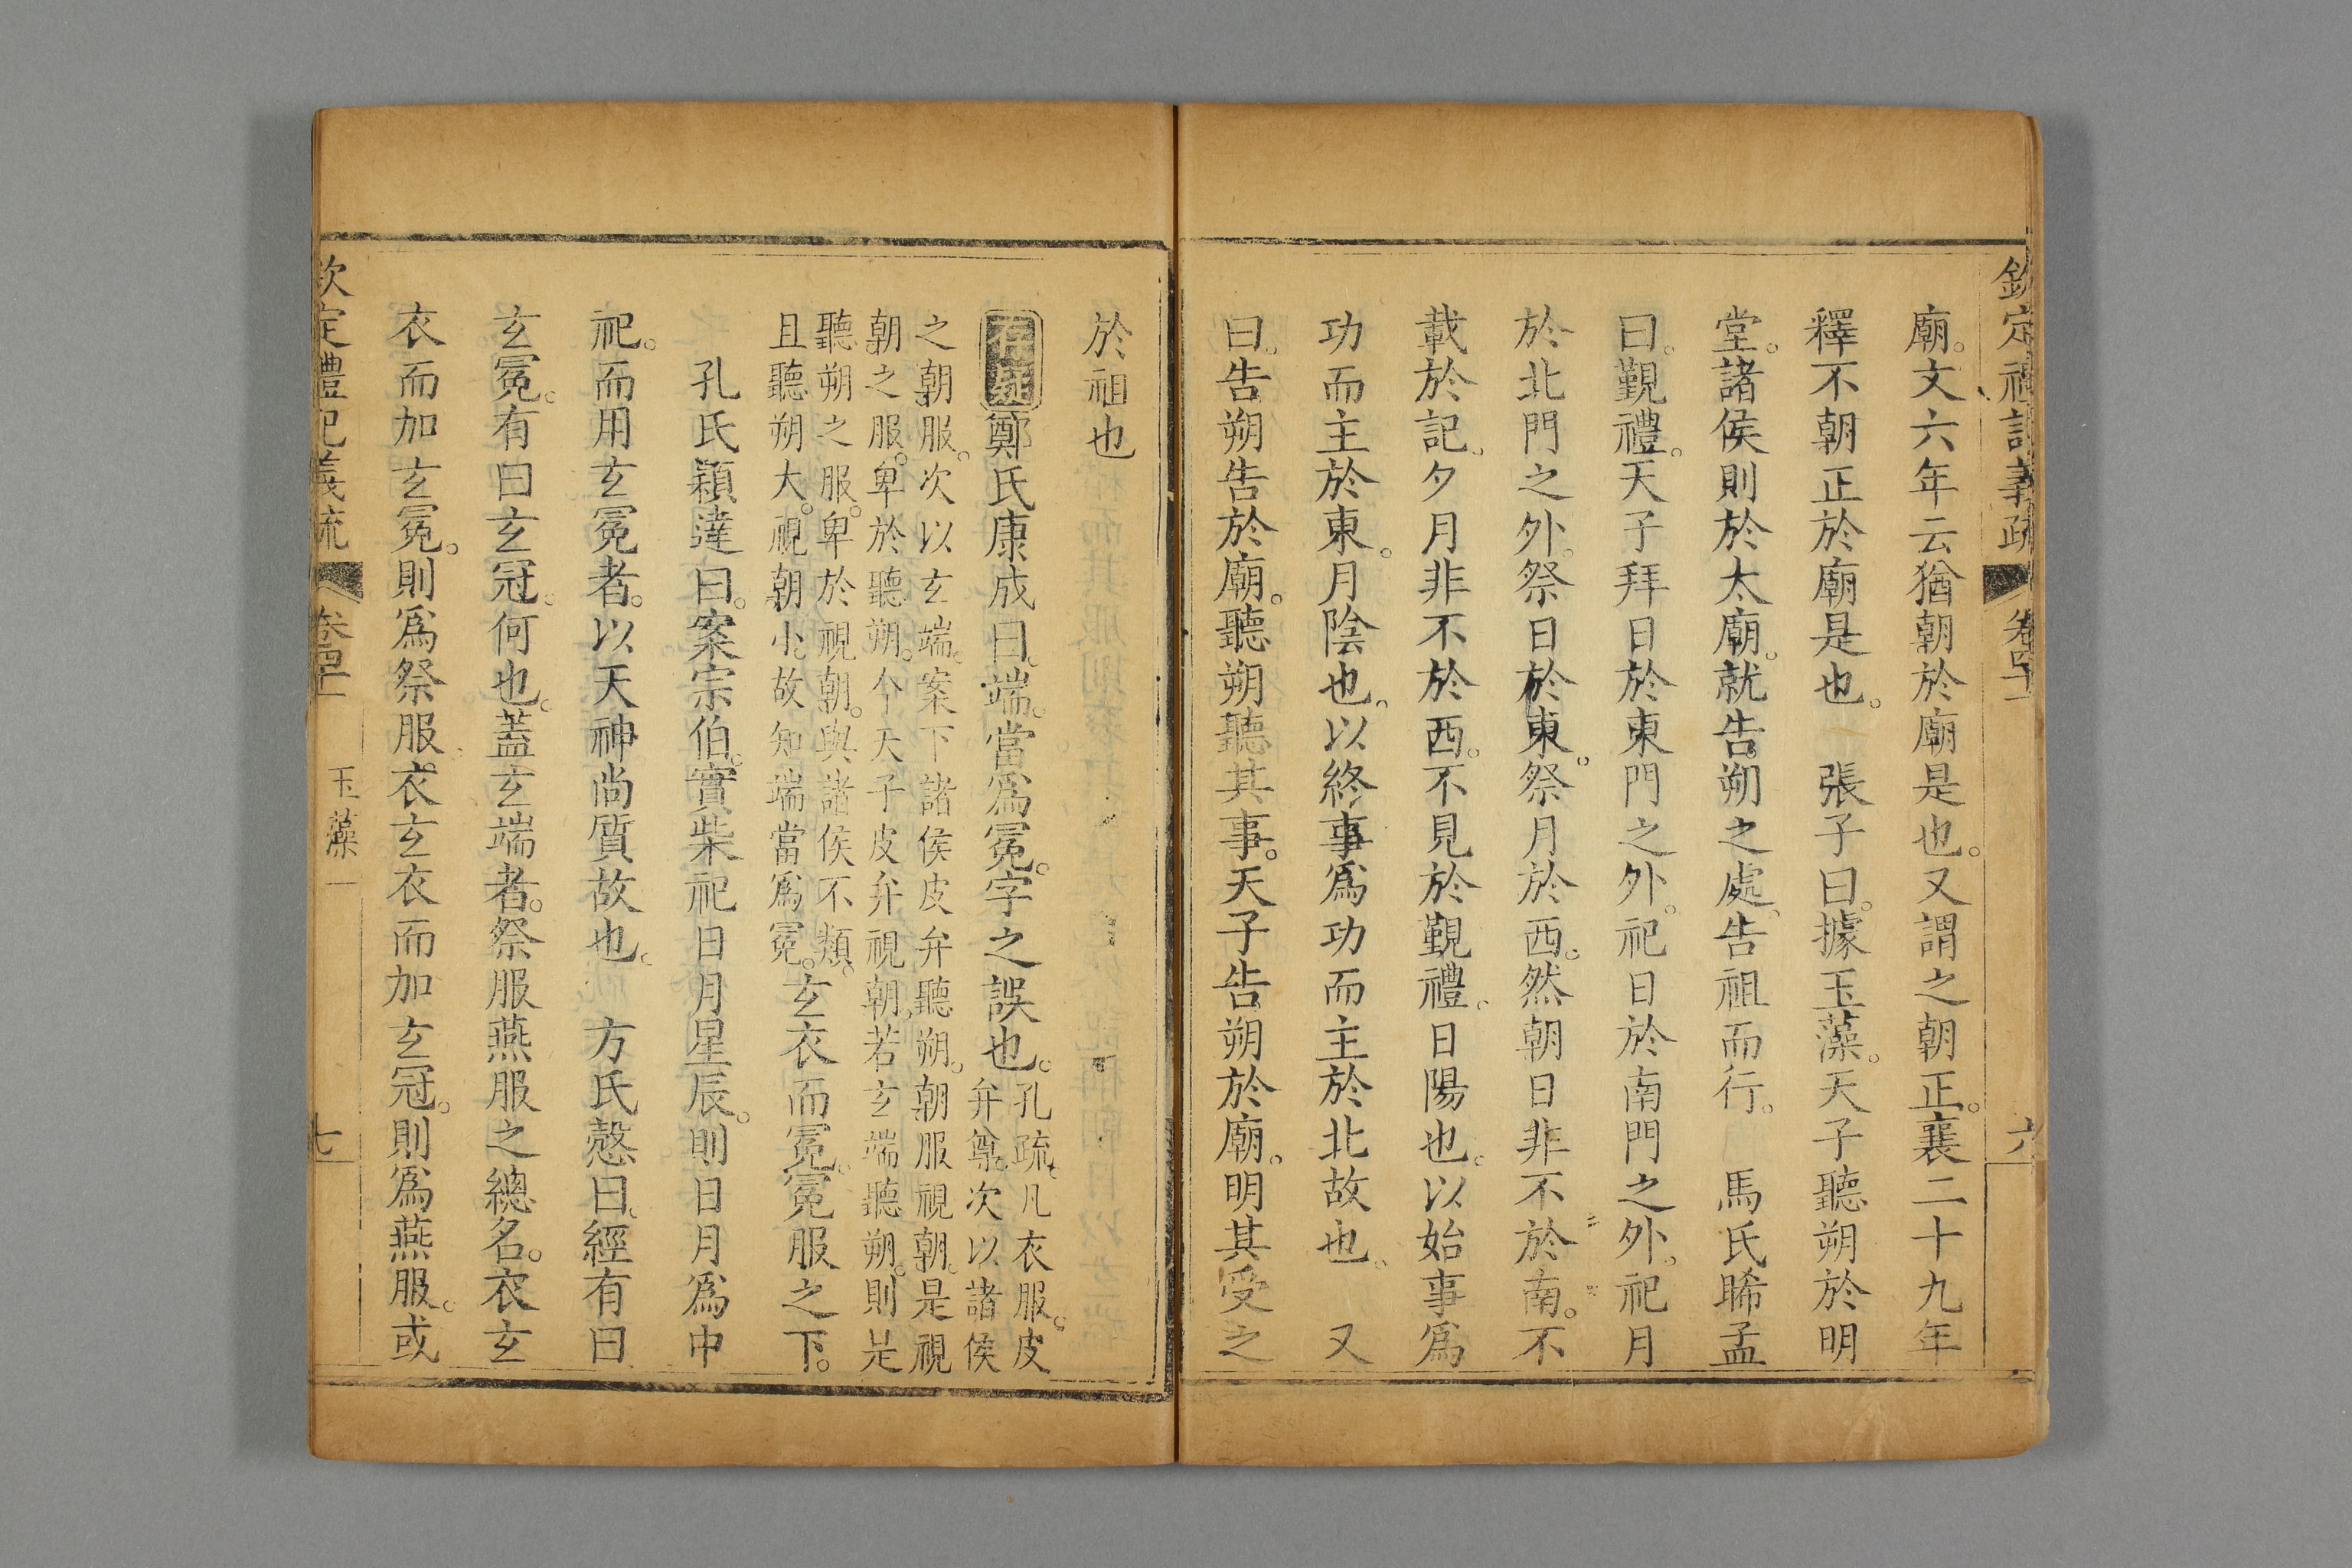 欽定禮記義疏 卷四十一 六
廟。文六年云猶朝於廟是也。又謂之朝正。襄二十九年
釋不朝正於廟是也。 張子曰。據玉藻。天子聽朔於明
堂。諸侯則於太廟。就告朔之處。告祖而行。 馬氏晞孟
曰。覲禮。天子拜日於東門之外。祀日於南門之外。祀月
於北門之外。祭日於東。祭月於西。然朝日非不於南。不
載於記。夕月非不於西。不見於覲禮。日陽也。以始事爲
功而主於東。月陰也。以終事爲功而主於北故也。 又
曰。告朔告於廟。聽朔聽其事。天子告朔於廟。明其受之
於祖也
存疑鄭氏康成曰。端。當爲冕。字之誤也。孔疏。凡衣服。皮
弁尊。次以諸侯
之朝服。次以玄端。案下諸侯皮弁聽朔。朝服視朝。是視
朝之服。卑於聽朔。今天子皮弁視朝。若玄端聽朔。則是
聽朔之服。卑於視朝。與諸侯不類。
且聽朔大。視朝小。故知端當爲冕。玄衣而冕。冕服之下。
孔氏穎達曰。案宗伯。實柴祀日月星辰。則日月爲中
祀。而用玄冕者。以天神尚質故也。 方氏慤曰。經有曰
玄冕。有曰玄冠。何也。蓋玄端者。祭服燕服之總名。衣玄
衣而加玄冕。則爲祭服。衣玄衣而加玄冠。則爲燕服。或
欽定禮記義疏 卷四十一 玉藻一 七